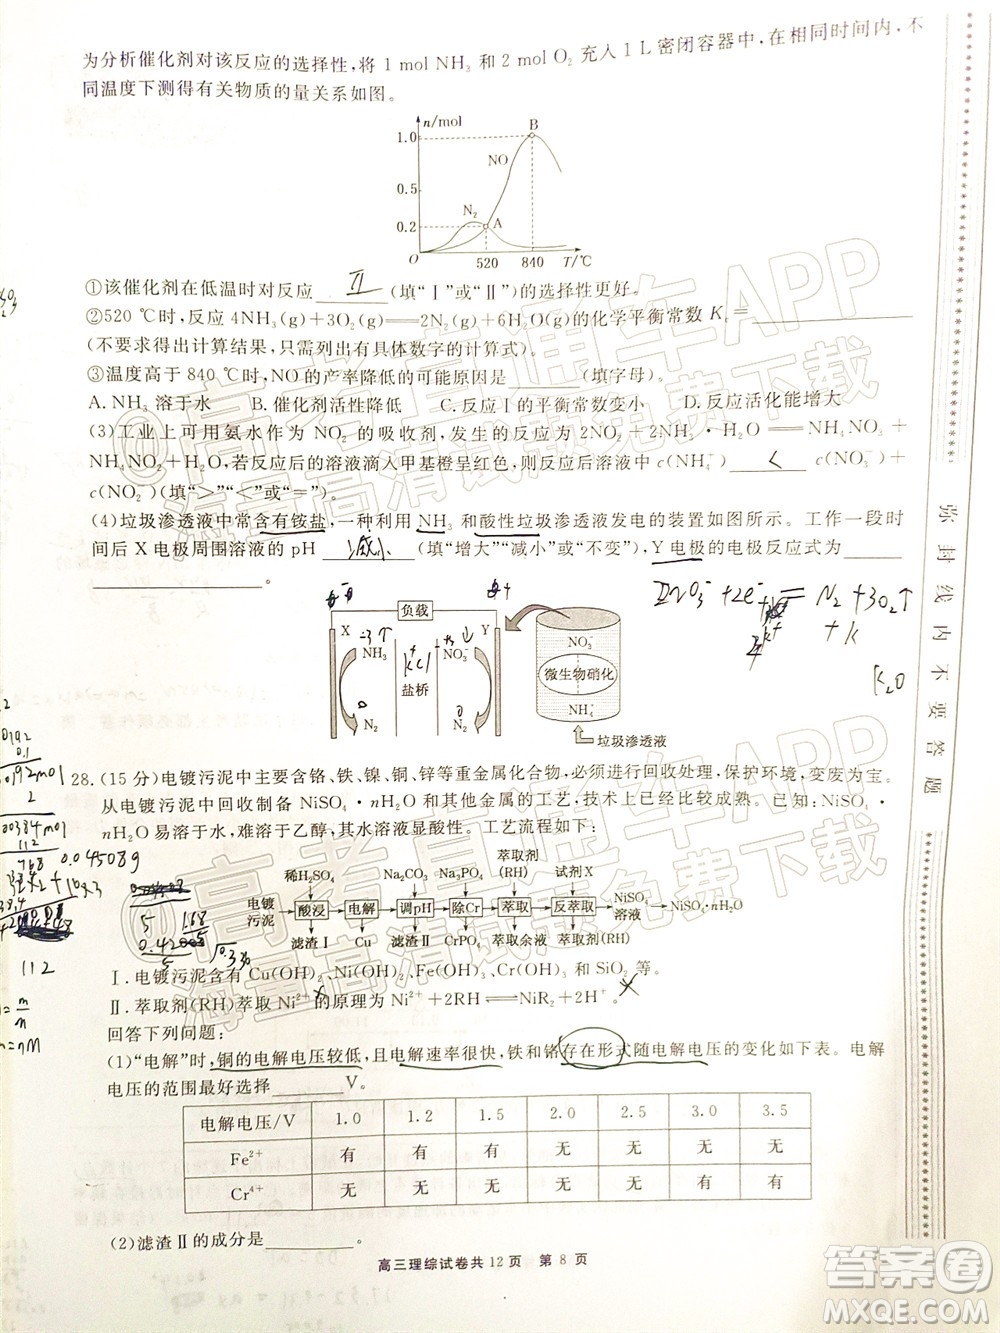 为分析催化剂对该反应的选择性,将 1 mol NH₃ 和 2 mol O₂ 充入 1 L 密闭容器中,在相同时间内,不
同温度下测得有关物质的量关系如图。
n/mol
1.0
0.5
0.2
0
NO
B
N₂
A
520 840 T/℃
①该催化剂在低温时对反应 Ⅱ (填“Ⅰ”或“Ⅱ”)的选择性更好。
②520 ℃时,反应 4NH₃(g)+3O₂(g)══2N₂(g)+6H₂O(g)的化学平衡常数 K = ________
(不要求得出计算结果,只需列出有具体数字的计算式)。
③温度高于 840 ℃时,NO 的产率降低的可能原因是________(填字母)。
A. NH₃ 溶于水 B. 催化剂活性降低 C. 反应Ⅰ的平衡常数变小 D. 反应活化能增大
(3)工业上可用氨水作为 NO₂ 的吸收剂,发生的反应为 2NO₂+2NH₃·H₂O══NH₄NO₃+
NH₄NO₂+H₂O,若反应后的溶液滴入甲基橙呈红色,则反应后溶液中 c(NH₄⁺) < c(NO₃⁻)+
c(NO₂⁻)(填“>”“<”或“=”)。
(4)垃圾渗透液中常含有铵盐,一种利用 NH₃ 和酸性垃圾渗透液发电的装置如图所示。工作一段时
间后 X 电极周围溶液的 pH 减小 (填“增大”“减小”或“不变”),Y 电极的电极反应式为________
________。
负载
X
Y
NH₃
盐桥
NO₃⁻
N₂
N₂
KCl
NO₃⁻
微生物硝化
NH₄⁺
垃圾渗透液
K₂O
28. (15 分)电镀污泥中主要含铬、铁、镍、铜、锌等重金属化合物,必须进行回收处理,保护环境,变废为宝。
从电镀污泥中回收制备 NiSO₄·nH₂O 和其他金属的工艺,已比较成熟。已知:NiSO₄·
nH₂O 易溶于水,难溶于乙醇,其水溶液显酸性。工艺流程如下:
稀H₂SO₄ Na₂CO₃ Na₃PO₄ 萃取剂(RH) 试剂X
电镀污泥 酸浸 电解 调pH 除Cr 萃取 反萃取 NiSO₄溶液 NiSO₄·nH₂O
滤渣Ⅰ Cu 滤渣Ⅱ CrPO₄ 萃取余液 萃取剂(RH)
Ⅰ. 电镀污泥含有 Cu(OH)₂、Ni(OH)₂、Fe(OH)₃、Cr(OH)₃ 和 SiO₂ 等。
Ⅱ. 萃取剂(RH)萃取 Ni²⁺ 的原理为 Ni²⁺+2RH⇌NiR₂+2H⁺。
回答下列问题:
(1)“电解”时,铜的电解电压较低,且电解速率很快,铁和铬存在形式随电解电压的变化如下表。电解
电压的范围最好选择________。
电解电压/V 1.0 1.2 1.5 2.0 2.5 3.0 3.5
Fe²⁺ 有 有 有 无 无 无 无
Cr⁴⁺ 无 无 无 无 无 有 有
(2)滤渣Ⅱ的成分是________。
高三理综试卷共 12 页 第 8 页
弥封线内不要答题
@高考直通车APP
海量高清试题免费下载
@高考直通车APP
海量高清试题免费下载
答案圈
MXQE.COM